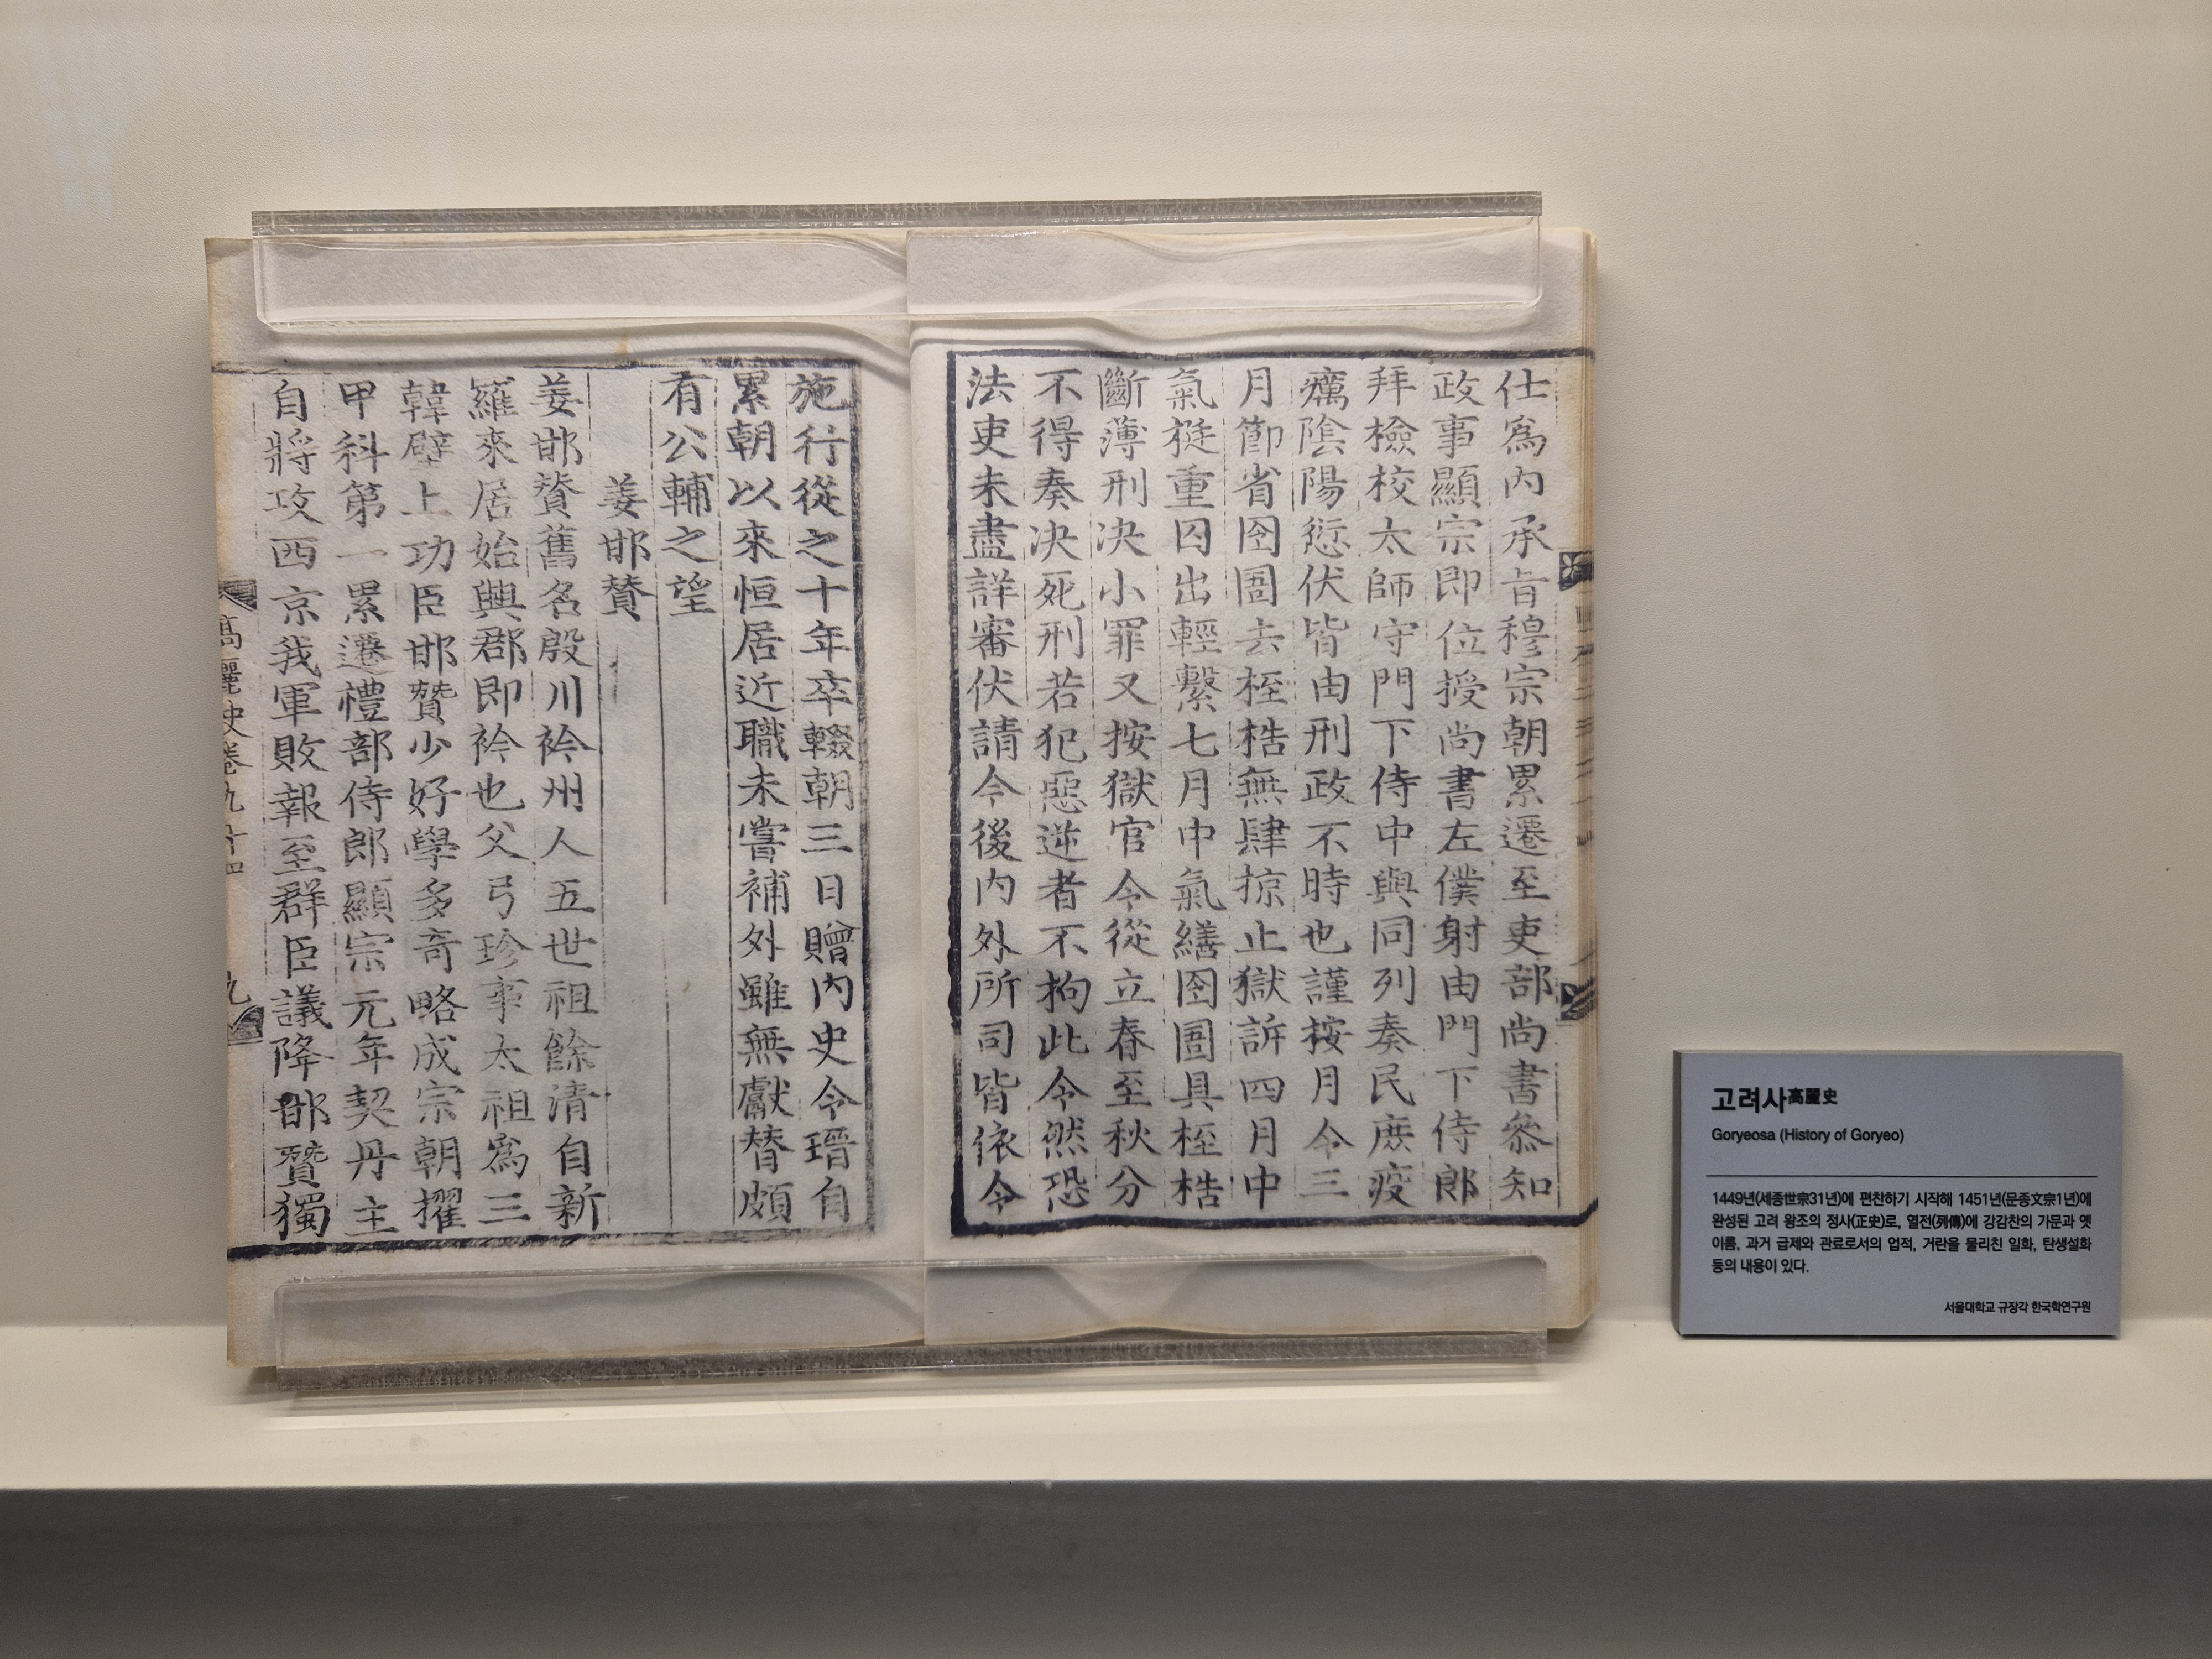 仕爲內承旨穆宗朝累遷至吏部尚書叅知
政事顯宗即位授尚書左僕射由門下侍郎
拜檢校太師守門下侍中與同列奏民庶疫
癘陰陽愆伏皆由刑政不時也謹按月令三
月節省囹圄去桎梏無肆掠止獄訴四月中
氣挺重囚出輕繫七月中氣繕囹圄具桎梏
斷薄刑决小罪又按獄官令從立春至秋分
不得奏决死刑若犯惡逆者不拘此令然恐
法吏未盡詳審伏請今後內外所司皆依令
施行從之十年卒輟朝三日贈內史令瑨自
累朝以來恒居近職未嘗補外雖無獻替頗
有公輔之望
姜邯贊
姜邯贊舊名殷川衿州人五世祖餘清自新
羅來居始興郡即衿也父弓珍事太祖爲三
韓壁上功臣邯贊少好學多奇略成宗朝擢
甲科第一累遷禮部侍郎顯宗元年契丹主
自將攻西京我軍敗報至群臣議降邯贊獨
高麗史卷九十四
九
고려사高麗史
Goryeosa (History of Goryeo)
1449년(세종世宗31년)에 편찬하기 시작해 1451년(문종文宗1년)에
완성된 고려 왕조의 정사(正史)로, 열전(列傳)에 강감찬의 가문과 옛
이름, 과거 급제와 관료로서의 업적, 거란을 물리친 일화, 탄생설화
등의 내용이 있다.
서울대학교 규장각 한국학연구원